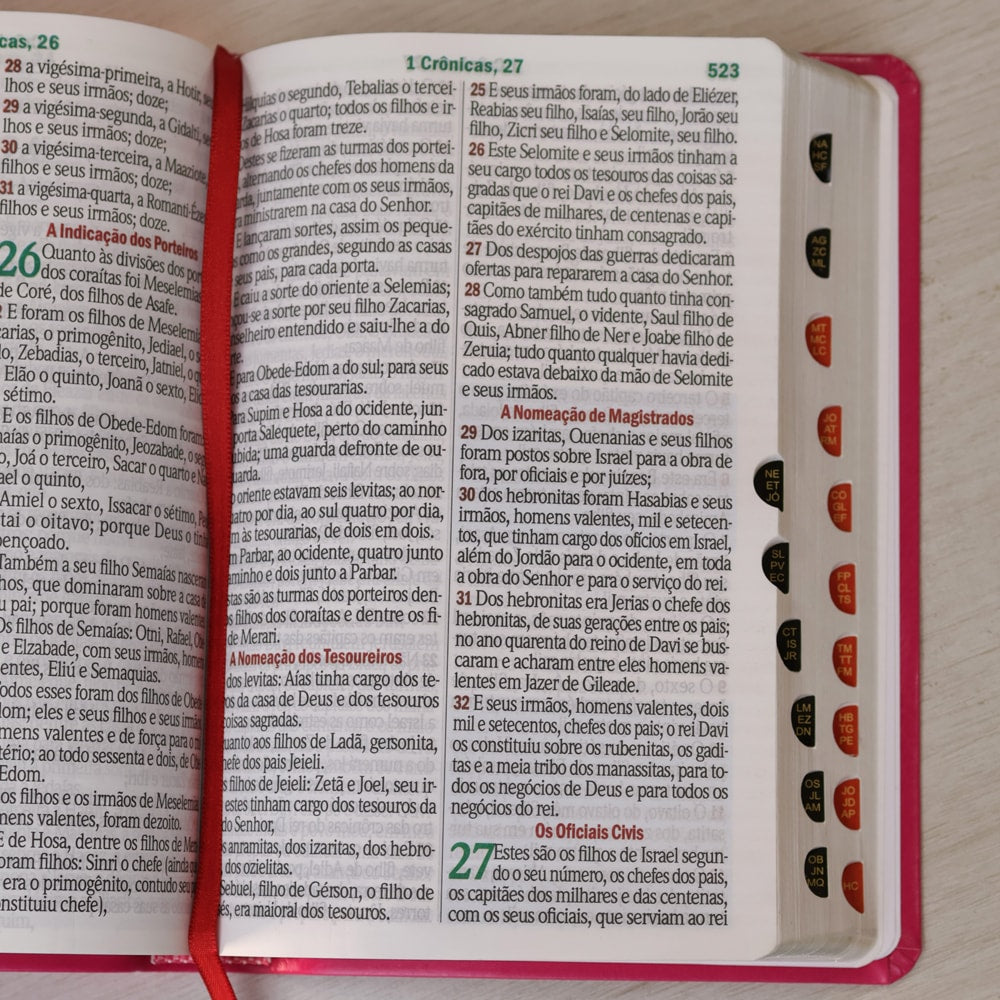 cas, 26
28 a vigésima-primeira, a Hotir, seus
lhos e seus irmãos; doze;
29 a vigésima-segunda, a Gidalti,
lhos e seus irmãos; doze;
30 a vigésima-terceira, a Maaziote,
filhos e seus irmãos; doze;
31 a vigésima-quarta, a Romanti-Ézer
filhos e seus irmãos; doze.
A Indicação dos Porteiros
26 Quanto às divisões dos por
dos coraítas foi Meselemias
de Coré, dos filhos de Asafe.
E foram os filhos de Meselemi
carias, o primogênito, Jediael, o s
lo, Zebadias, o terceiro, Jatniel, o q
Elão o quinto, Joanã o sexto, Elio
sétimo.
E os filhos de Obede-Edom foram
naías o primogênito, Jeozabade, o seg
o, Joá o terceiro, Sacar o quarto e Na
ael o quinto,
Amiel o sexto, Issacar o sétimo, Pe
tai o oitavo; porque Deus o tinh
bençoado.
Também a seu filho Semaías nascera
hos, que dominaram sobre a casa d
u pai; porque foram homens valentes
Os filhos de Semaías: Otni, Rafael, Obe
e Elzabade, com seus irmãos, home
entes, Eliú e Semaquias.
Todos esses foram dos filhos de Obede
dom; eles e seus filhos e seus irmãos
mens valentes e de força para o mi
tério; ao todo sessenta e dois, de Ob
Edom.
os filhos e os irmãos de Meselemi
mens valentes, foram dezoito.
E de Hosa, dentre os filhos de Mer
foram filhos: Sinri o chefe (ainda qu
era o primogênito, contudo seu p
onstituiu chefe),
1 Crônicas, 27
523
Hilquias o segundo, Tebalias o tercei-
Zacarias o quarto; todos os filhos e ir-
os de Hosa foram treze.
Destes se fizeram as turmas dos portei-
alternando os chefes dos homens da
rda, juntamente com os seus irmãos,
a ministrarem na casa do Senhor.
E lançaram sortes, assim os peque-
como os grandes, segundo as casas
seus pais, para cada porta.
E caiu a sorte do oriente a Selemias;
çou-se a sorte por seu filho Zacarias,
nselheiro entendido e saiu-lhe a do
rte.
para Obede-Edom a do sul; para seus
os a casa das tesourarias.
Para Supim e Hosa a do ocidente, jun-
porta Salequete, perto do caminho
ubida; uma guarda defronte de ou-
uarda.
o oriente estavam seis levitas; ao nor-
uatro por dia, ao sul quatro por dia,
m às tesourarias, de dois em dois.
m Parbar, ao ocidente, quatro junto
aminho e dois junto a Parbar.
stas são as turmas dos porteiros den-
os filhos dos coraítas e dentre os fi-
de Merari.
A Nomeação dos Tesoureiros
dos levitas: Aías tinha cargo dos te-
ros da casa de Deus e dos tesouros
coisas sagradas.
uanto aos filhos de Ladã, gersonita,
hefe dos pais Jeieli.
s filhos de Jejeli: Zetã e Joel, seu ir-
estes tinham cargo dos tesouros da
do Senhor,
s anramitas, dos izaritas, dos hebro-
dos ozielitas.
Sebuel, filho de Gérson, o filho de
és, era maioral dos tesouros.
25 E seus irmãos foram, do lado de Eliézer,
Reabias seu filho, Isaías, seu filho, Jorão seu
filho, Zicri seu filho e Selomite, seu filho.
26 Este Selomite e seus irmãos tinham a
seu cargo todos os tesouros das coisas sa-
gradas que o rei Davi e os chefes dos pais,
capitães de milhares, de centenas e capi-
tães do exército tinham consagrado.
27 Dos despojos das guerras dedicaram
ofertas para repararem a casa do Senhor.
28 Como também tudo quanto tinha con-
sagrado Samuel, o vidente, Saul filho de
Quis, Abner filho de Ner e Joabe filho de
Zeruia; tudo quanto qualquer havia dedi-
cado estava debaixo da mão de Selomite
e seus irmãos.
A Nomeação de Magistrados
29 Dos izaritas, Quenanias e seus filhos
foram postos sobre Israel para a obra de
fora, por oficiais e por juízes;
30 dos hebronitas foram Hasabias e seus
irmãos, homens valentes, mil e setecen-
tos, que tinham cargo dos ofícios em Israel,
além do Jordão para o ocidente, em toda
a obra do Senhor e para o serviço do rei.
31 Dos hebronitas era Jerias o chefe dos
hebronitas, de suas gerações entre os pais;
no ano quarenta do reino de Davi se bus-
caram e acharam entre eles homens va-
lentes em Jazer de Gileade.
32 E seus irmãos, homens valentes, dois
mil e setecentos, chefes dos pais; o rei Davi
os constituiu sobre os rubenitas, os gadi-
tas e a meia tribo dos manassitas, para to-
dos os negócios de Deus e para todos os
negócios do rei.
Os Oficiais Civis
27 Estes são os filhos de Israel segun-
do o seu número, os chefes dos pais,
os capitães dos milhares e das centenas,
com os seus oficiais, que serviam ao rei
NA
HC
SF
AG
ZC
ML
MT
MC
LC
JO
AT
RM
NE
ET
JÓ
CO
GL
EF
SL
PV
EC
FP
CL
TS
CT
IS
JR
TM
TT
FM
LM
EZ
DN
HB
TG
PE
OS
JL
AM
JO
JD
AP
OB
JN
MQ
HC